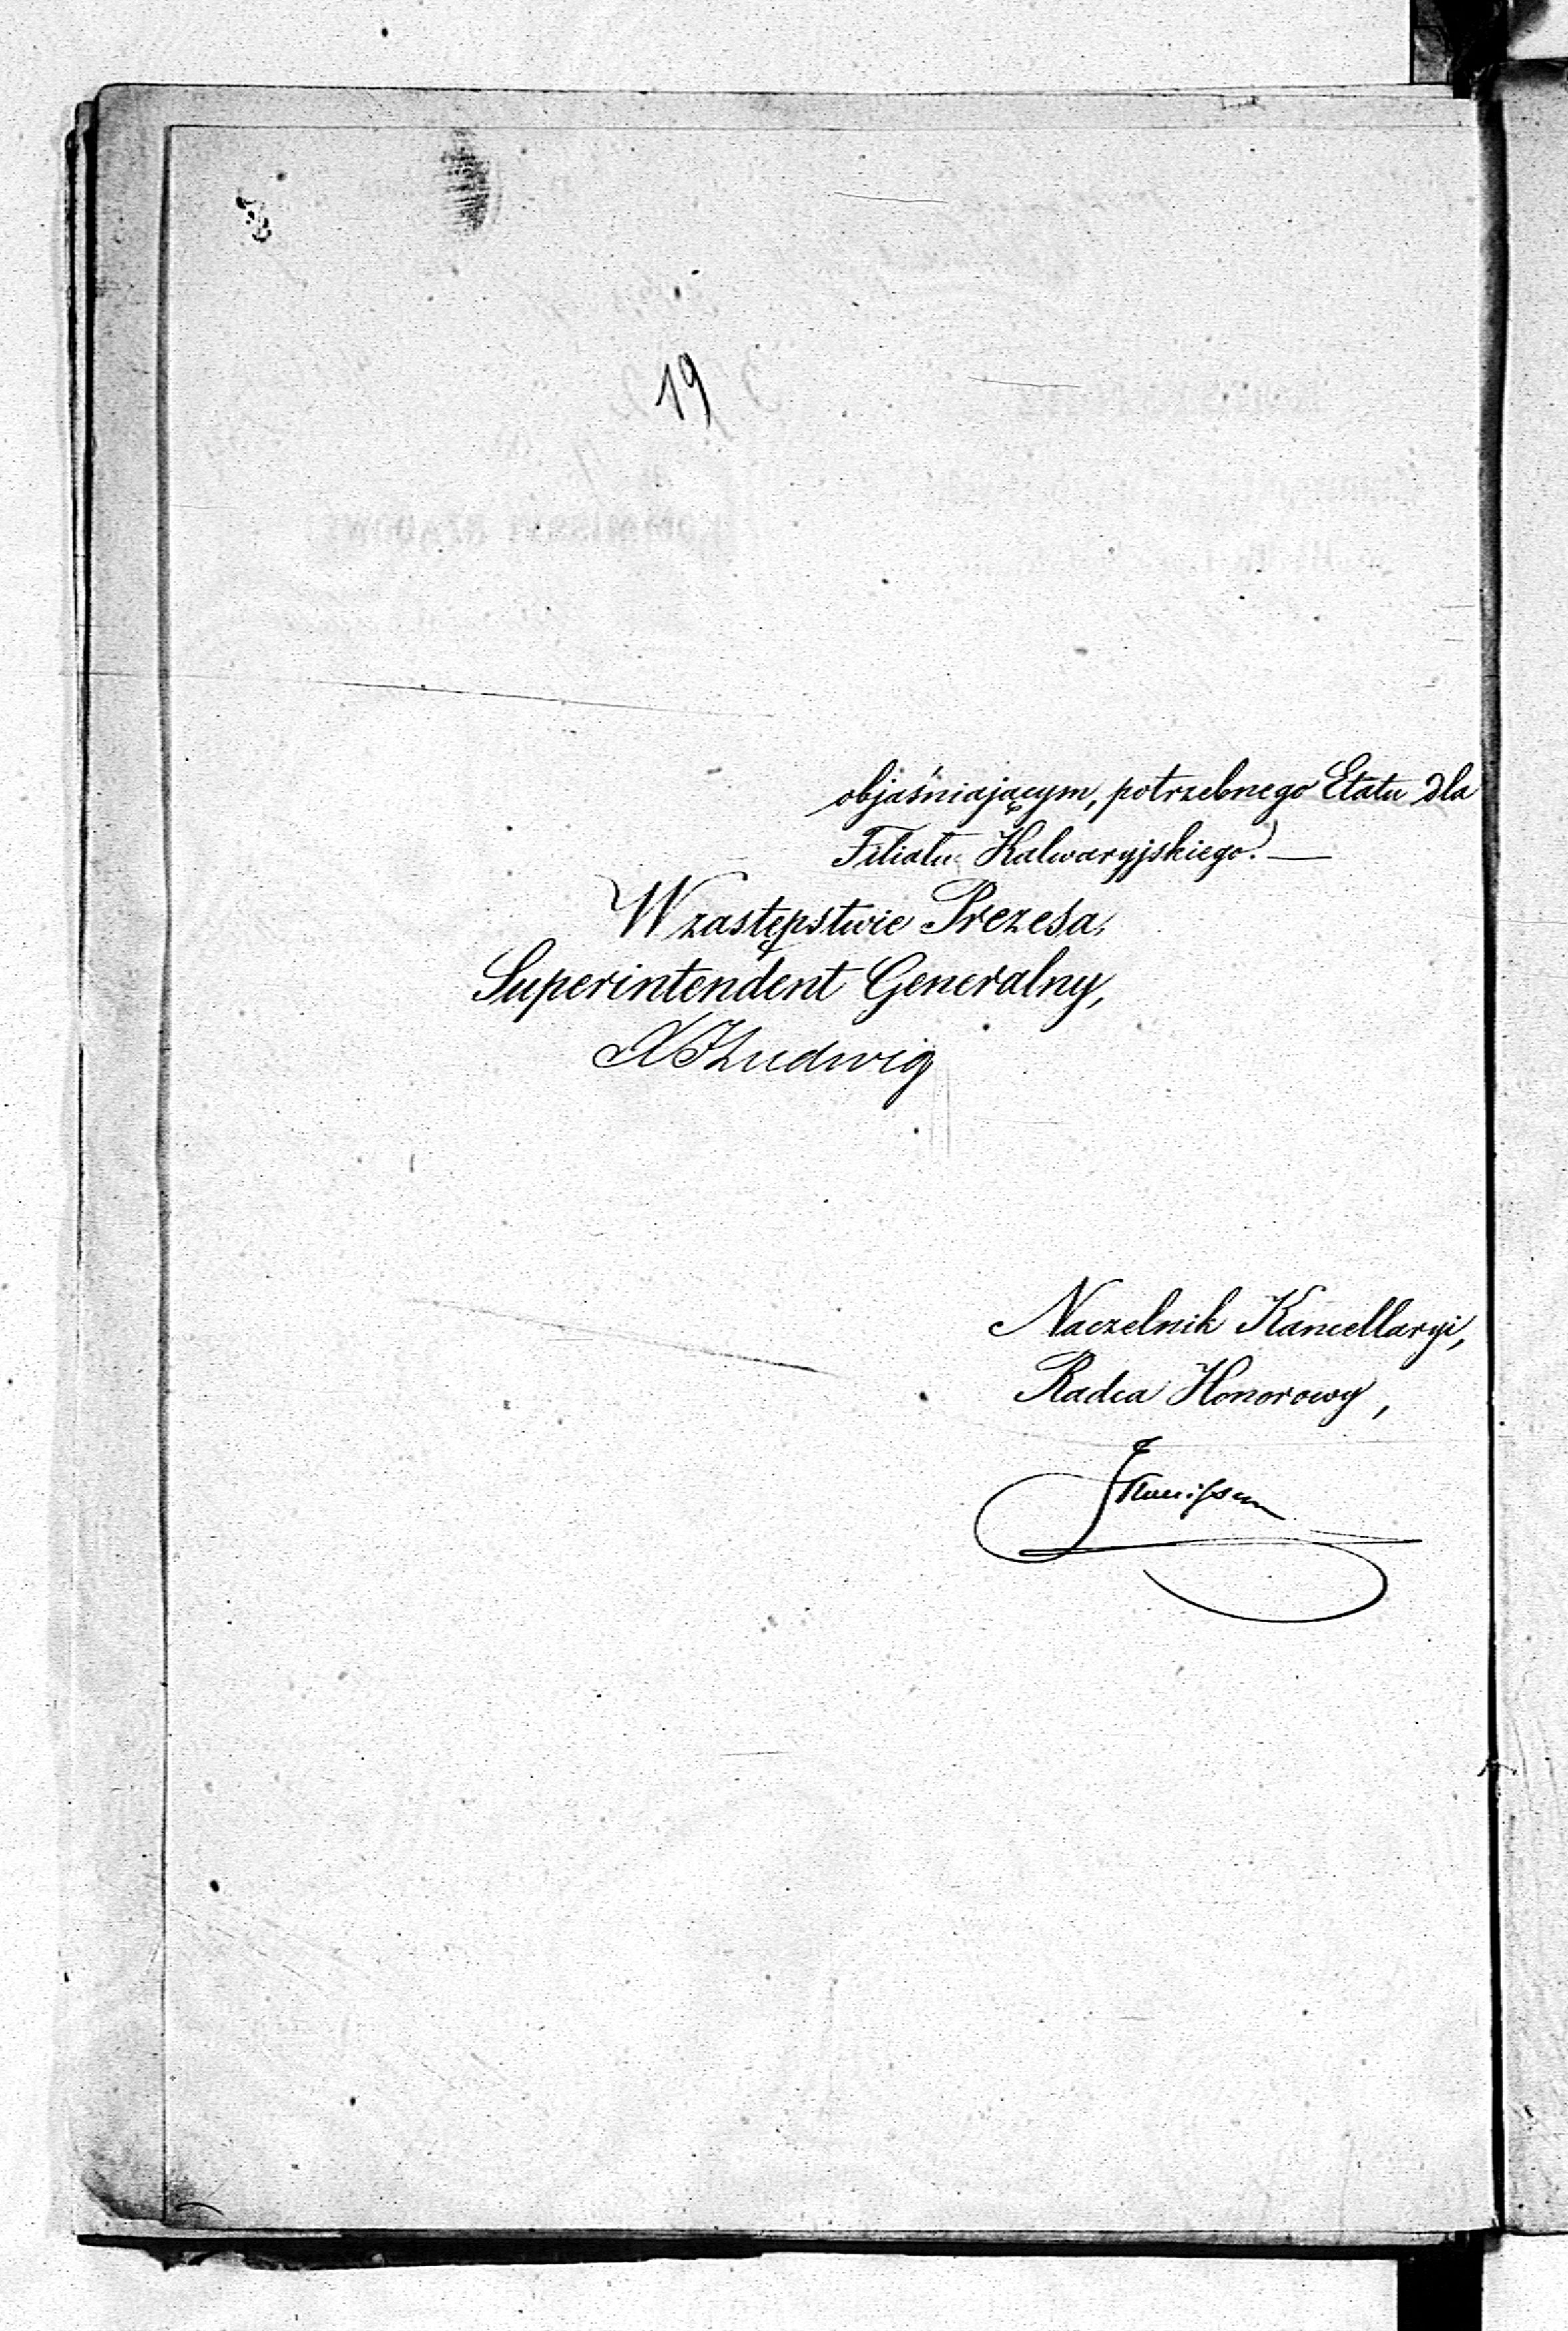 19
objaśniającym, potrzebnego Etatu dla
Filiału Kalwaryjskiego. —
W zastępstwie Prezesa,
Superintendent Generalny,
Ludwig
Naczelnik Kancellaryi,
Radca Honorowy,